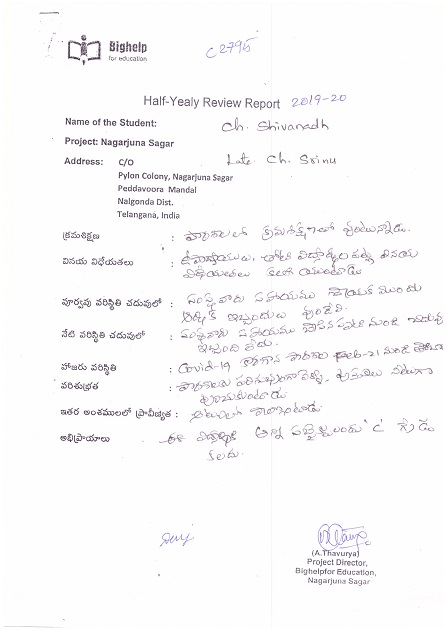 Bighelp
for education
C2795
Half-Yealy Review Report 2019-20
Name of the Student: Ch. Shivanadh
Project: Nagarjuna Sagar
Address: C/O Late Ch. Srinu
Pylon Colony, Nagarjuna Sagar
Peddavoora Mandal
Nalgonda Dist.
Telangana, India
క్రమశిక్షణ : పాఠశాలలో క్రమశిక్షణలో వుంటున్నాడు.
వినయ విధేయతలు : ఉపాధ్యాయులు, తోటి విద్యార్థుల పట్ల వినయ
విధేయతలు కలిగి యుంటాడు
పూర్వపు పరిస్థితి చదువులో : సంస్థ వారు సహాయము చేయక ముందు
ఇబ్బందులు వుండేవి.
నేటి పరిస్థితి చదువులో : సంస్థవారు సహాయము చేసిన నుండి
ఇబ్బంది లేదు.
హాజరు పరిస్థితి : Covid-19 కారణాన పాఠశాల Feb-21 నుండి
పరిశుభ్రత : పరిశుభ్రంగా పుస్తకాలు నీటుగా
ఉంచుకుంటాడు
ఇతర అంశములలో ప్రావీణ్యత : ఆటలలో బాగుంటాడు.
అభిప్రాయాలు : ఈ విద్యార్థికి అన్ని సబ్జెక్టులందు 'C' గ్రేడు
కలదు.
(A.Thavurya)
Project Director,
Bighelpfor Education,
Nagarjuna Sagar